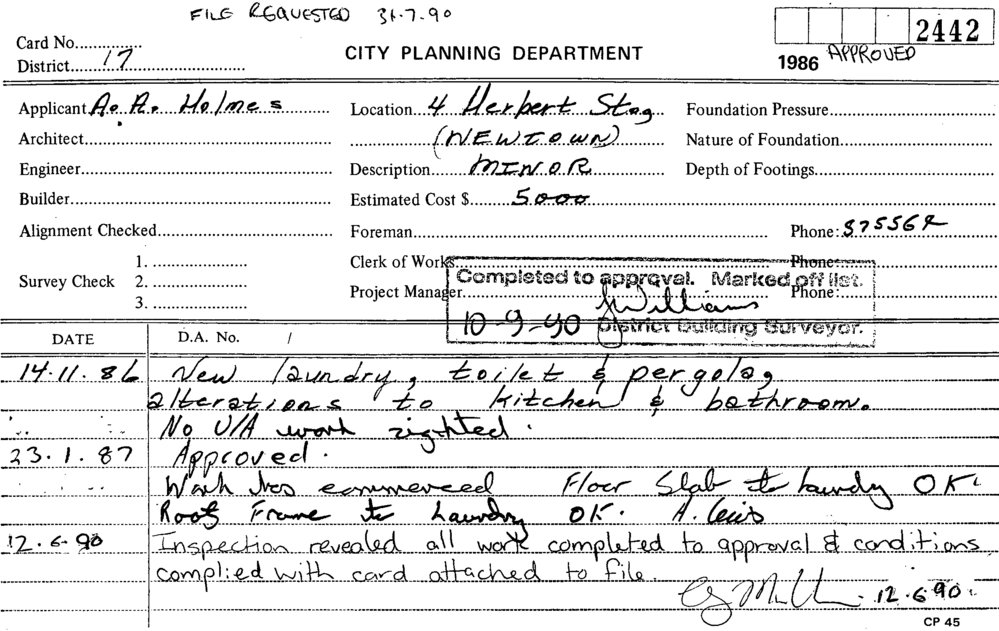 FILE REQUESTED 31.7.90
2442
Card No.
District 17
CITY PLANNING DEPARTMENT
1986 APPROVED
Applicant A. A. Holmes
Location 4 Herbert St.,
Foundation Pressure
Architect
(NEWTOWN)
Nature of Foundation
Engineer
Description MINOR
Depth of Footings
Builder
Estimated Cost $ 5000
Alignment Checked
Foreman
Phone:
Clerk of Works
Phone:
Survey Check
1.
2.
3.
Project Manager
Phone:
Completed to approval. Marked off list.
Williams
10-9-90 District Building Surveyor.
DATE
D.A. No. /
14.11.86 New laundry, toilet & pergola,
alterations to kitchen & bathroom.
No U/A work sighted.
23.1.87 Approved.
Work has commenced Floor Slab to Laundry OK.
Roof Frame to Laundry OK. A.
12.6.90 Inspection revealed all work completed to approval & conditions
complied with card attached to file.
12.6.90.
CP 45